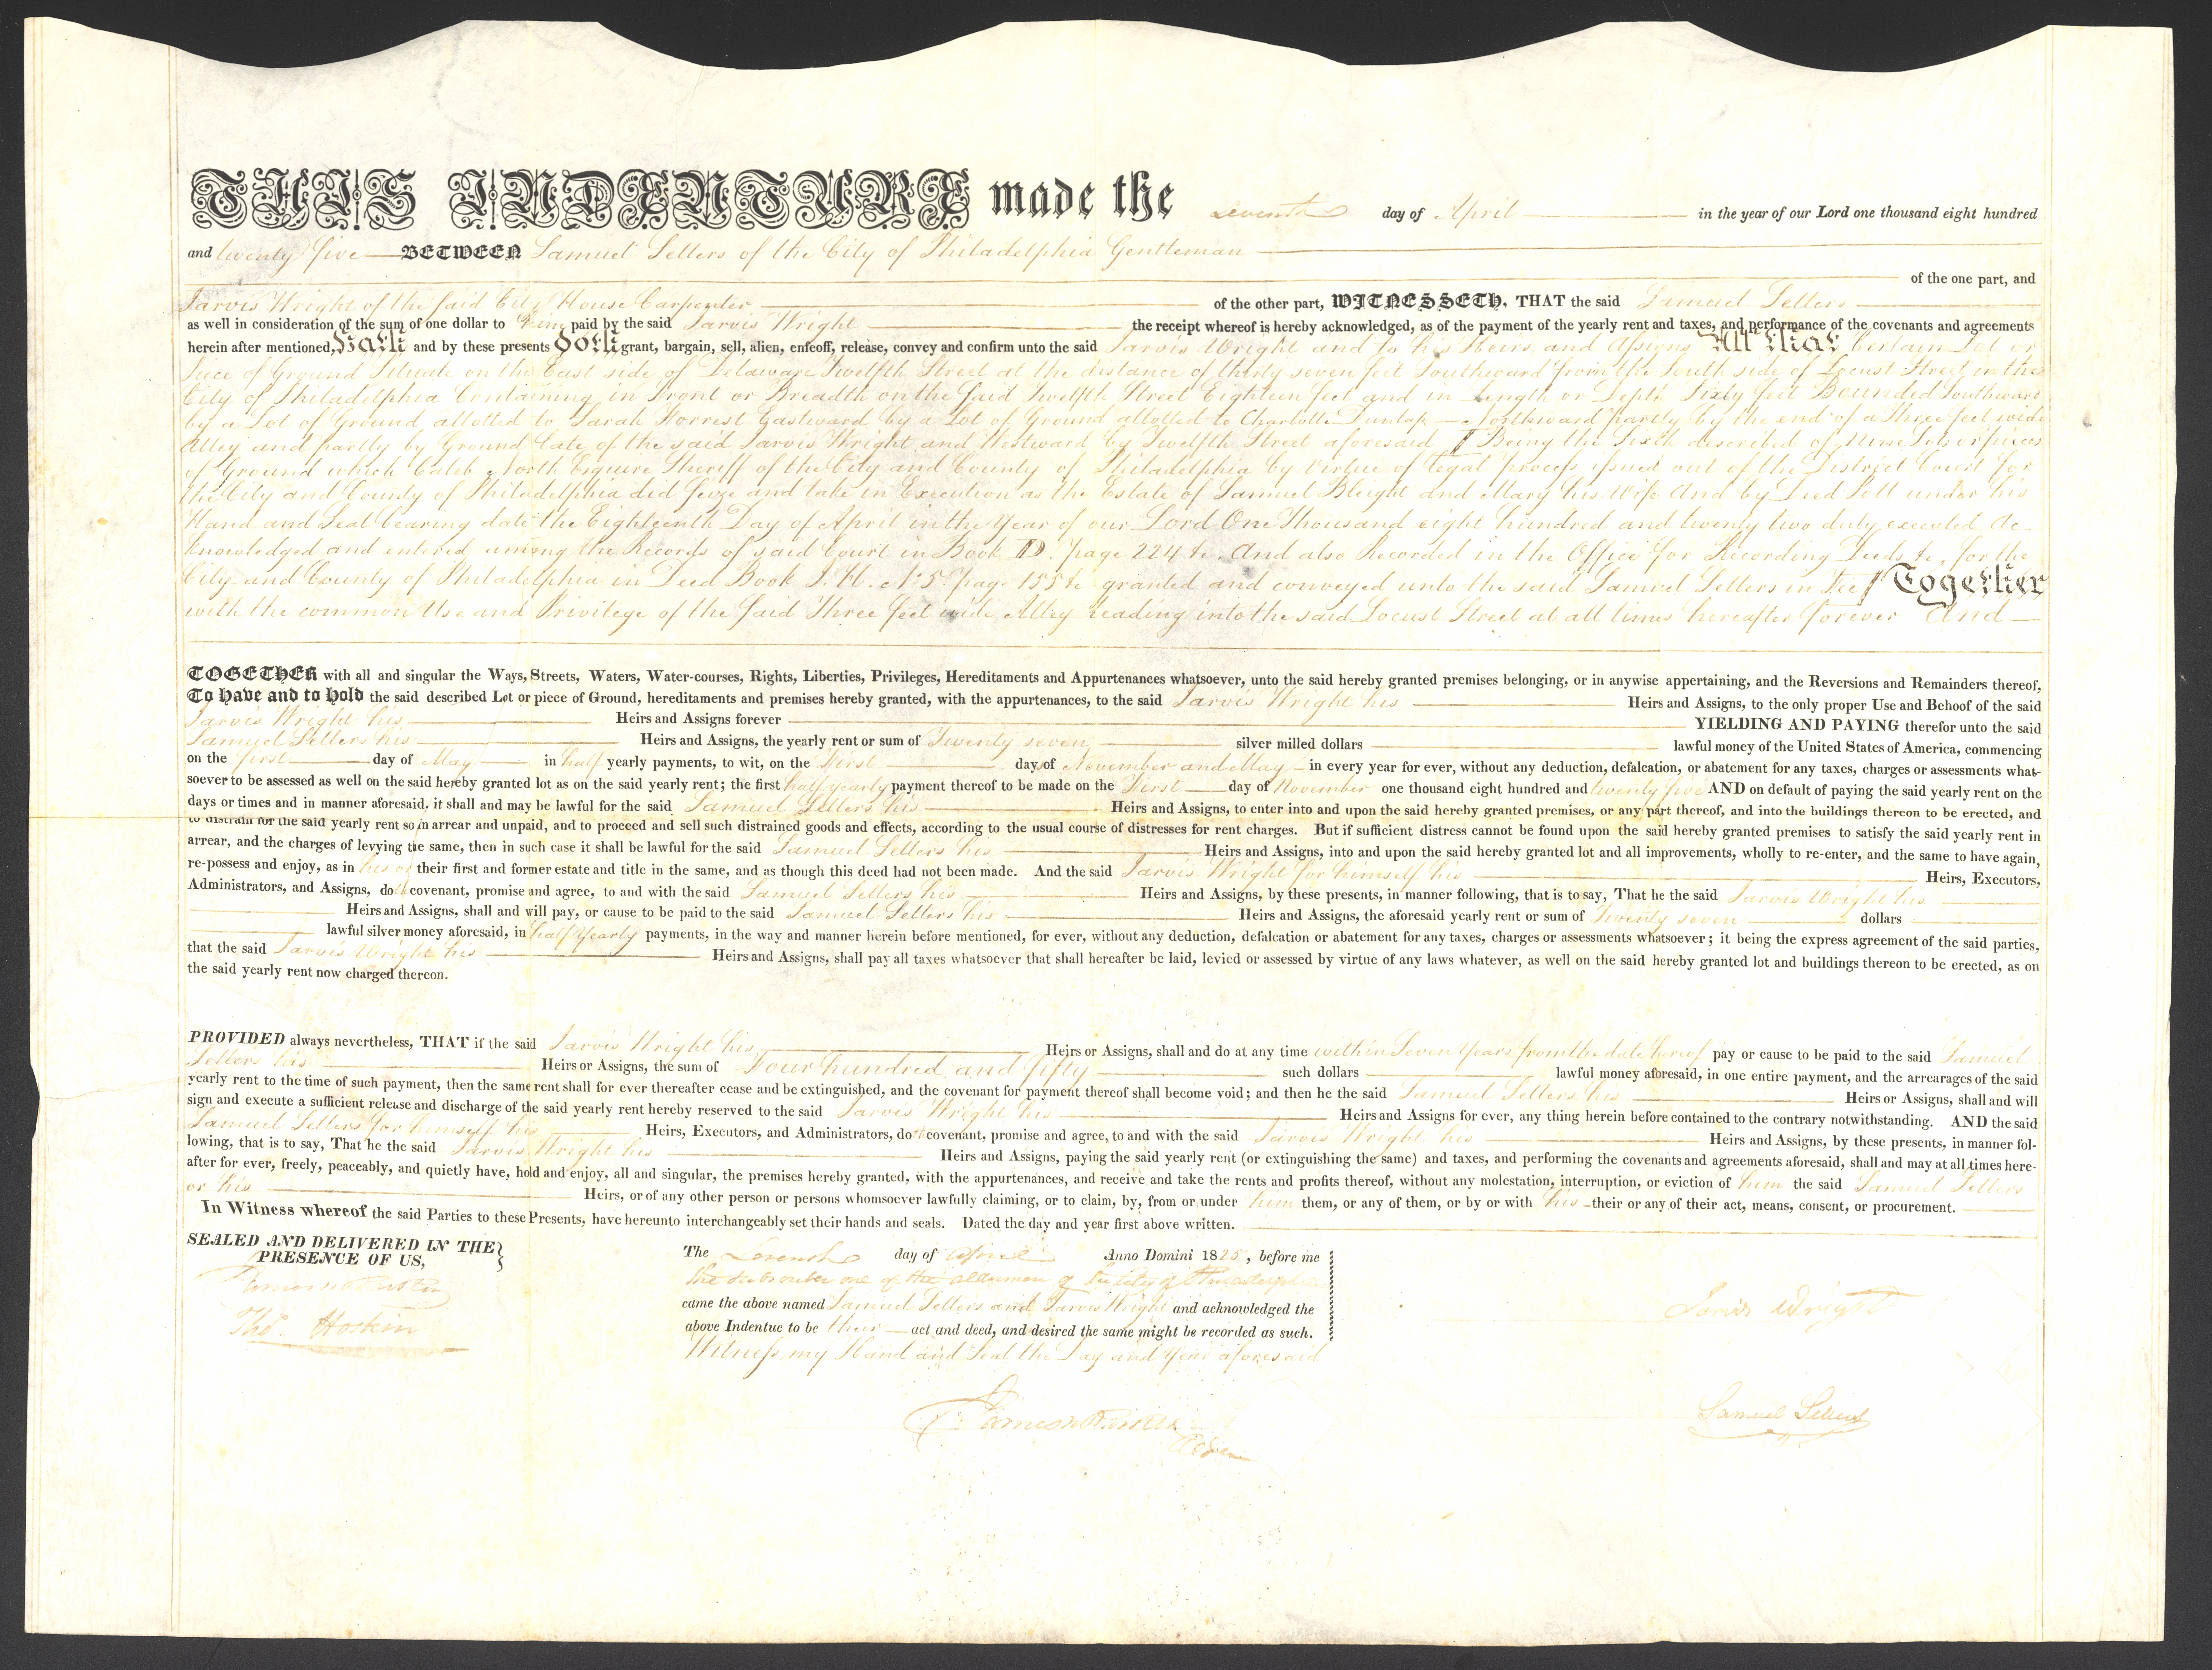 THIS INDENTURE made the Seventh day of April in the year of our Lord one thousand eight hundred
and twenty five BETWEEN Samuel Sellers of the City of Philadelphia Gentleman
of the one part, and
Jarvis Wright of the said City House Carpenter of the other part, WITNESSETH, THAT the said Samuel Sellers
as well in consideration of the sum of one dollar to him paid by the said Jarvis Wright the receipt whereof is hereby acknowledged, as of the payment of the yearly rent and taxes, and performance of the covenants and agreements
herein after mentioned, Hath and by these presents Doth grant, bargain, sell, alien, enfeoff, release, convey and confirm unto the said Jarvis Wright and to his Heirs and Assigns All that Certain Lot or
Piece of Ground Situate on the East side of Delaware Twelfth Street at the distance of thirty seven feet Southward from the South side of Locust Street in the
City of Philadelphia Containing in Front or Breadth on the said Twelfth Street Eighteen feet and in Length or Depth Sixty feet Bounded Southward
by a Lot of Ground allotted to Sarah Forrest Eastward by a Lot of Ground allotted to Charlotte Dunlap Northward partly by the end of a three feet wide
Alley and partly by Ground late of the said Jarvis Wright and Westward by Twelfth Street aforesaid Being the Sixth described of Nine Lots or pieces
of Ground which Caleb North Esquire Sheriff of the City and County of Philadelphia by virtue of legal process issued out of the District Court for
the City and County of Philadelphia did seize and take in Execution as the Estate of Samuel Bleight and Mary his Wife And by Deed Poll under his
Hand and Seal bearing date the Eighteenth Day of April in the Year of our Lord One Thousand eight hundred and twenty two duly executed Ac-
knowledged and entered among the Records of said Court in Book D. page 224 &c. And also Recorded in the Office for Recording Deeds &c. for the
City and County of Philadelphia in Deed Book I. H. No 5. page 155 &c granted and conveyed unto the said Samuel Sellers in Fee Together
with the common Use and Privilege of the said Three feet wide Alley leading into the said Locust Street at all times hereafter forever And
TOGETHER with all and singular the Ways, Streets, Waters, Water-courses, Rights, Liberties, Privileges, Hereditaments and Appurtenances whatsoever, unto the said hereby granted premises belonging, or in anywise appertaining, and the Reversions and Remainders thereof,
To Have and to Hold the said described Lot or piece of Ground, hereditaments and premises hereby granted, with the appurtenances, to the said Jarvis Wright his Heirs and Assigns, to the only proper Use and Behoof of the said
Jarvis Wright his Heirs and Assigns forever YIELDING AND PAYING therefor unto the said
Samuel Sellers his Heirs and Assigns, the yearly rent or sum of Twenty seven silver milled dollars lawful money of the United States of America, commencing
on the first day of May in half yearly payments, to wit, on the First days of November and May in every year for ever, without any deduction, defalcation, or abatement for any taxes, charges or assessments what-
soever to be assessed as well on the said hereby granted lot as on the said yearly rent; the first half yearly payment thereof to be made on the First day of November one thousand eight hundred and twenty five AND on default of paying the said yearly rent on the
days or times and in manner aforesaid, it shall and may be lawful for the said Samuel Sellers his Heirs and Assigns, to enter into and upon the said hereby granted premises, or any part thereof, and into the buildings thereon to be erected, and
to distrain for the said yearly rent so in arrear and unpaid, and to proceed and sell such distrained goods and effects, according to the usual course of distresses for rent charges. But if sufficient distress cannot be found upon the said hereby granted premises to satisfy the said yearly rent in
arrear, and the charges of levying the same, then in such case it shall be lawful for the said Samuel Sellers his Heirs and Assigns, into and upon the said hereby granted lot and all improvements, wholly to re-enter, and the same to have again,
re-possess and enjoy, as in his or their first and former estate and title in the same, and as though this deed had not been made. And the said Jarvis Wright for himself his Heirs, Executors,
Administrators, and Assigns, doth covenant, promise and agree, to and with the said Samuel Sellers his Heirs and Assigns, by these presents, in manner following, that is to say, That he the said Jarvis Wright his
Heirs and Assigns, shall and will pay, or cause to be paid to the said Samuel Sellers his Heirs and Assigns, the aforesaid yearly rent or sum of Twenty seven dollars
lawful silver money aforesaid, in half yearly payments, in the way and manner herein before mentioned, for ever, without any deduction, defalcation or abatement for any taxes, charges or assessments whatsoever; it being the express agreement of the said parties,
that the said Jarvis Wright his Heirs and Assigns, shall pay all taxes whatsoever that shall hereafter be laid, levied or assessed by virtue of any laws whatever, as well on the said hereby granted lot and buildings thereon to be erected, as on
the said yearly rent now charged thereon.
PROVIDED always nevertheless, THAT if the said Jarvis Wright his Heirs or Assigns, shall and do at any time within Seven Years from the date hereof pay or cause to be paid to the said Samuel
Sellers his Heirs or Assigns, the sum of Four hundred and fifty such dollars lawful money aforesaid, in one entire payment, and the arrearages of the said
yearly rent to the time of such payment, then the same rent shall for ever thereafter cease and be extinguished, and the covenant for payment thereof shall become void; and then he the said Samuel Sellers his Heirs or Assigns, shall and will
sign and execute a sufficient release and discharge of the said yearly rent hereby reserved to the said Jarvis Wright his Heirs and Assigns for ever, any thing herein before contained to the contrary notwithstanding. AND the said
Samuel Sellers for himself his Heirs, Executors, and Administrators, doth covenant, promise and agree, to and with the said Jarvis Wright his Heirs and Assigns, by these presents, in manner fol-
lowing, that is to say, That he the said Jarvis Wright his Heirs and Assigns, paying the said yearly rent (or extinguishing the same) and taxes, and performing the covenants and agreements aforesaid, shall and may at all times here-
after for ever, freely, peaceably, and quietly have, hold and enjoy, all and singular, the premises hereby granted, with the appurtenances, and receive and take the rents and profits thereof, without any molestation, interruption, or eviction of him the said Samuel Sellers
or his Heirs, or of any other person or persons whomsoever lawfully claiming, or to claim, by, from or under him them, or any of them, or by or with his their or any of their act, means, consent, or procurement.
In Witness whereof the said Parties to these Presents, have hereunto interchangeably set their hands and seals. Dated the day and year first above written.
SEALED AND DELIVERED IN THE
PRESENCE OF US,
Thos. Hoskin
The Seventh day of April Anno Domini 1825, before me
the subscriber one of the aldermen of the City of Philadelphia
came the above named Samuel Sellers and Jarvis Wright and acknowledged the
above Indentue to be their act and deed, and desired the same might be recorded as such.
Witness my Hand and Seal the Day and Year aforesaid
Jarvis Wright
Samuel Sellers